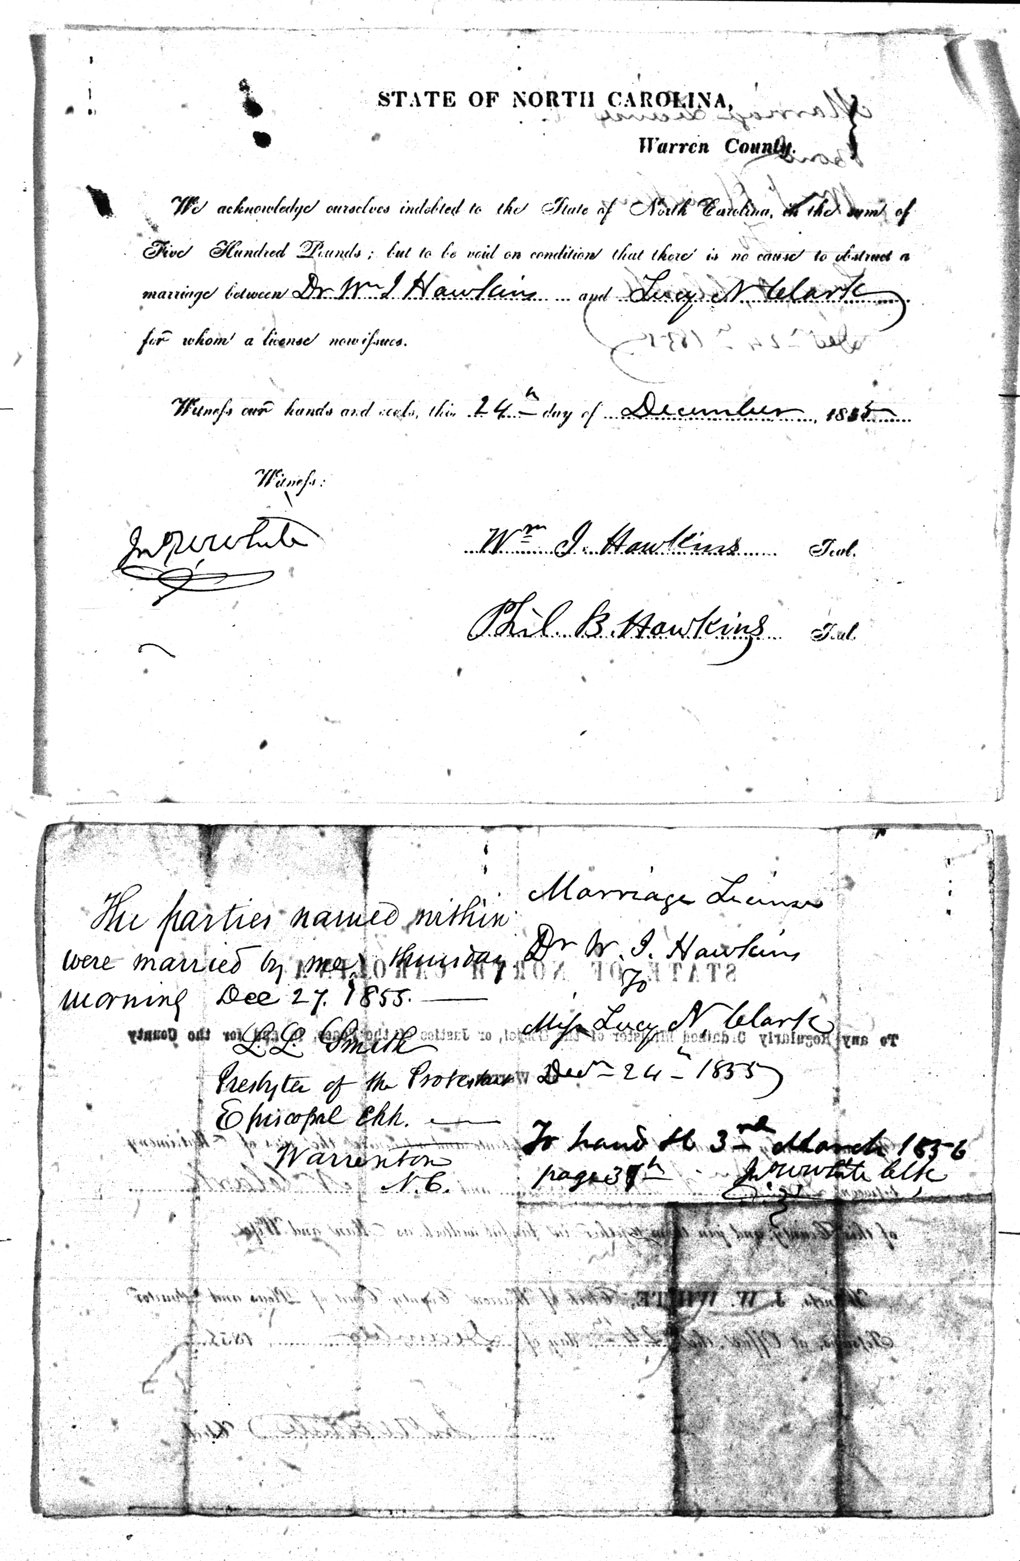 STATE OF NORTH CAROLINA,
Warren County.
We acknowledge ourselves indebted to the State of North Carolina, in the sum of
Five Hundred Pounds; but to be void on condition that there is no cause to obstruct a
marriage between Dr Wm J Hawkins and Lucy N Clark
for whom a license now issues.
Witness our hands and seals, this 24th day of December, 1855
Witness:
Jno W White
Wm J. Hawkins Seal.
Phil. B. Hawkins Seal.
The parties named within
were married by me, thursday
morning Dec 27. 1855.
Presbyter of the Protestant
Episcopal Chh.
Warrenton
N. C.
Marriage License
Dr W. J. Hawkins
To
Miss Lucy N Clark
Decr 24th 1855
To hand 3rd March 1856
page 37th Jno W White Clk
STATE OF NORTH CAROLINA
To any Regularly Ordained Minister of the Gospel, or Justice of the Peace, in and for the County
of this County, and join them together in lawful wedlock as Man and Wife
Witness, J. W. WHITE, Clerk of Warren County Court of Pleas and Quarter
Sessions, at Office, the 24th day of December 1855